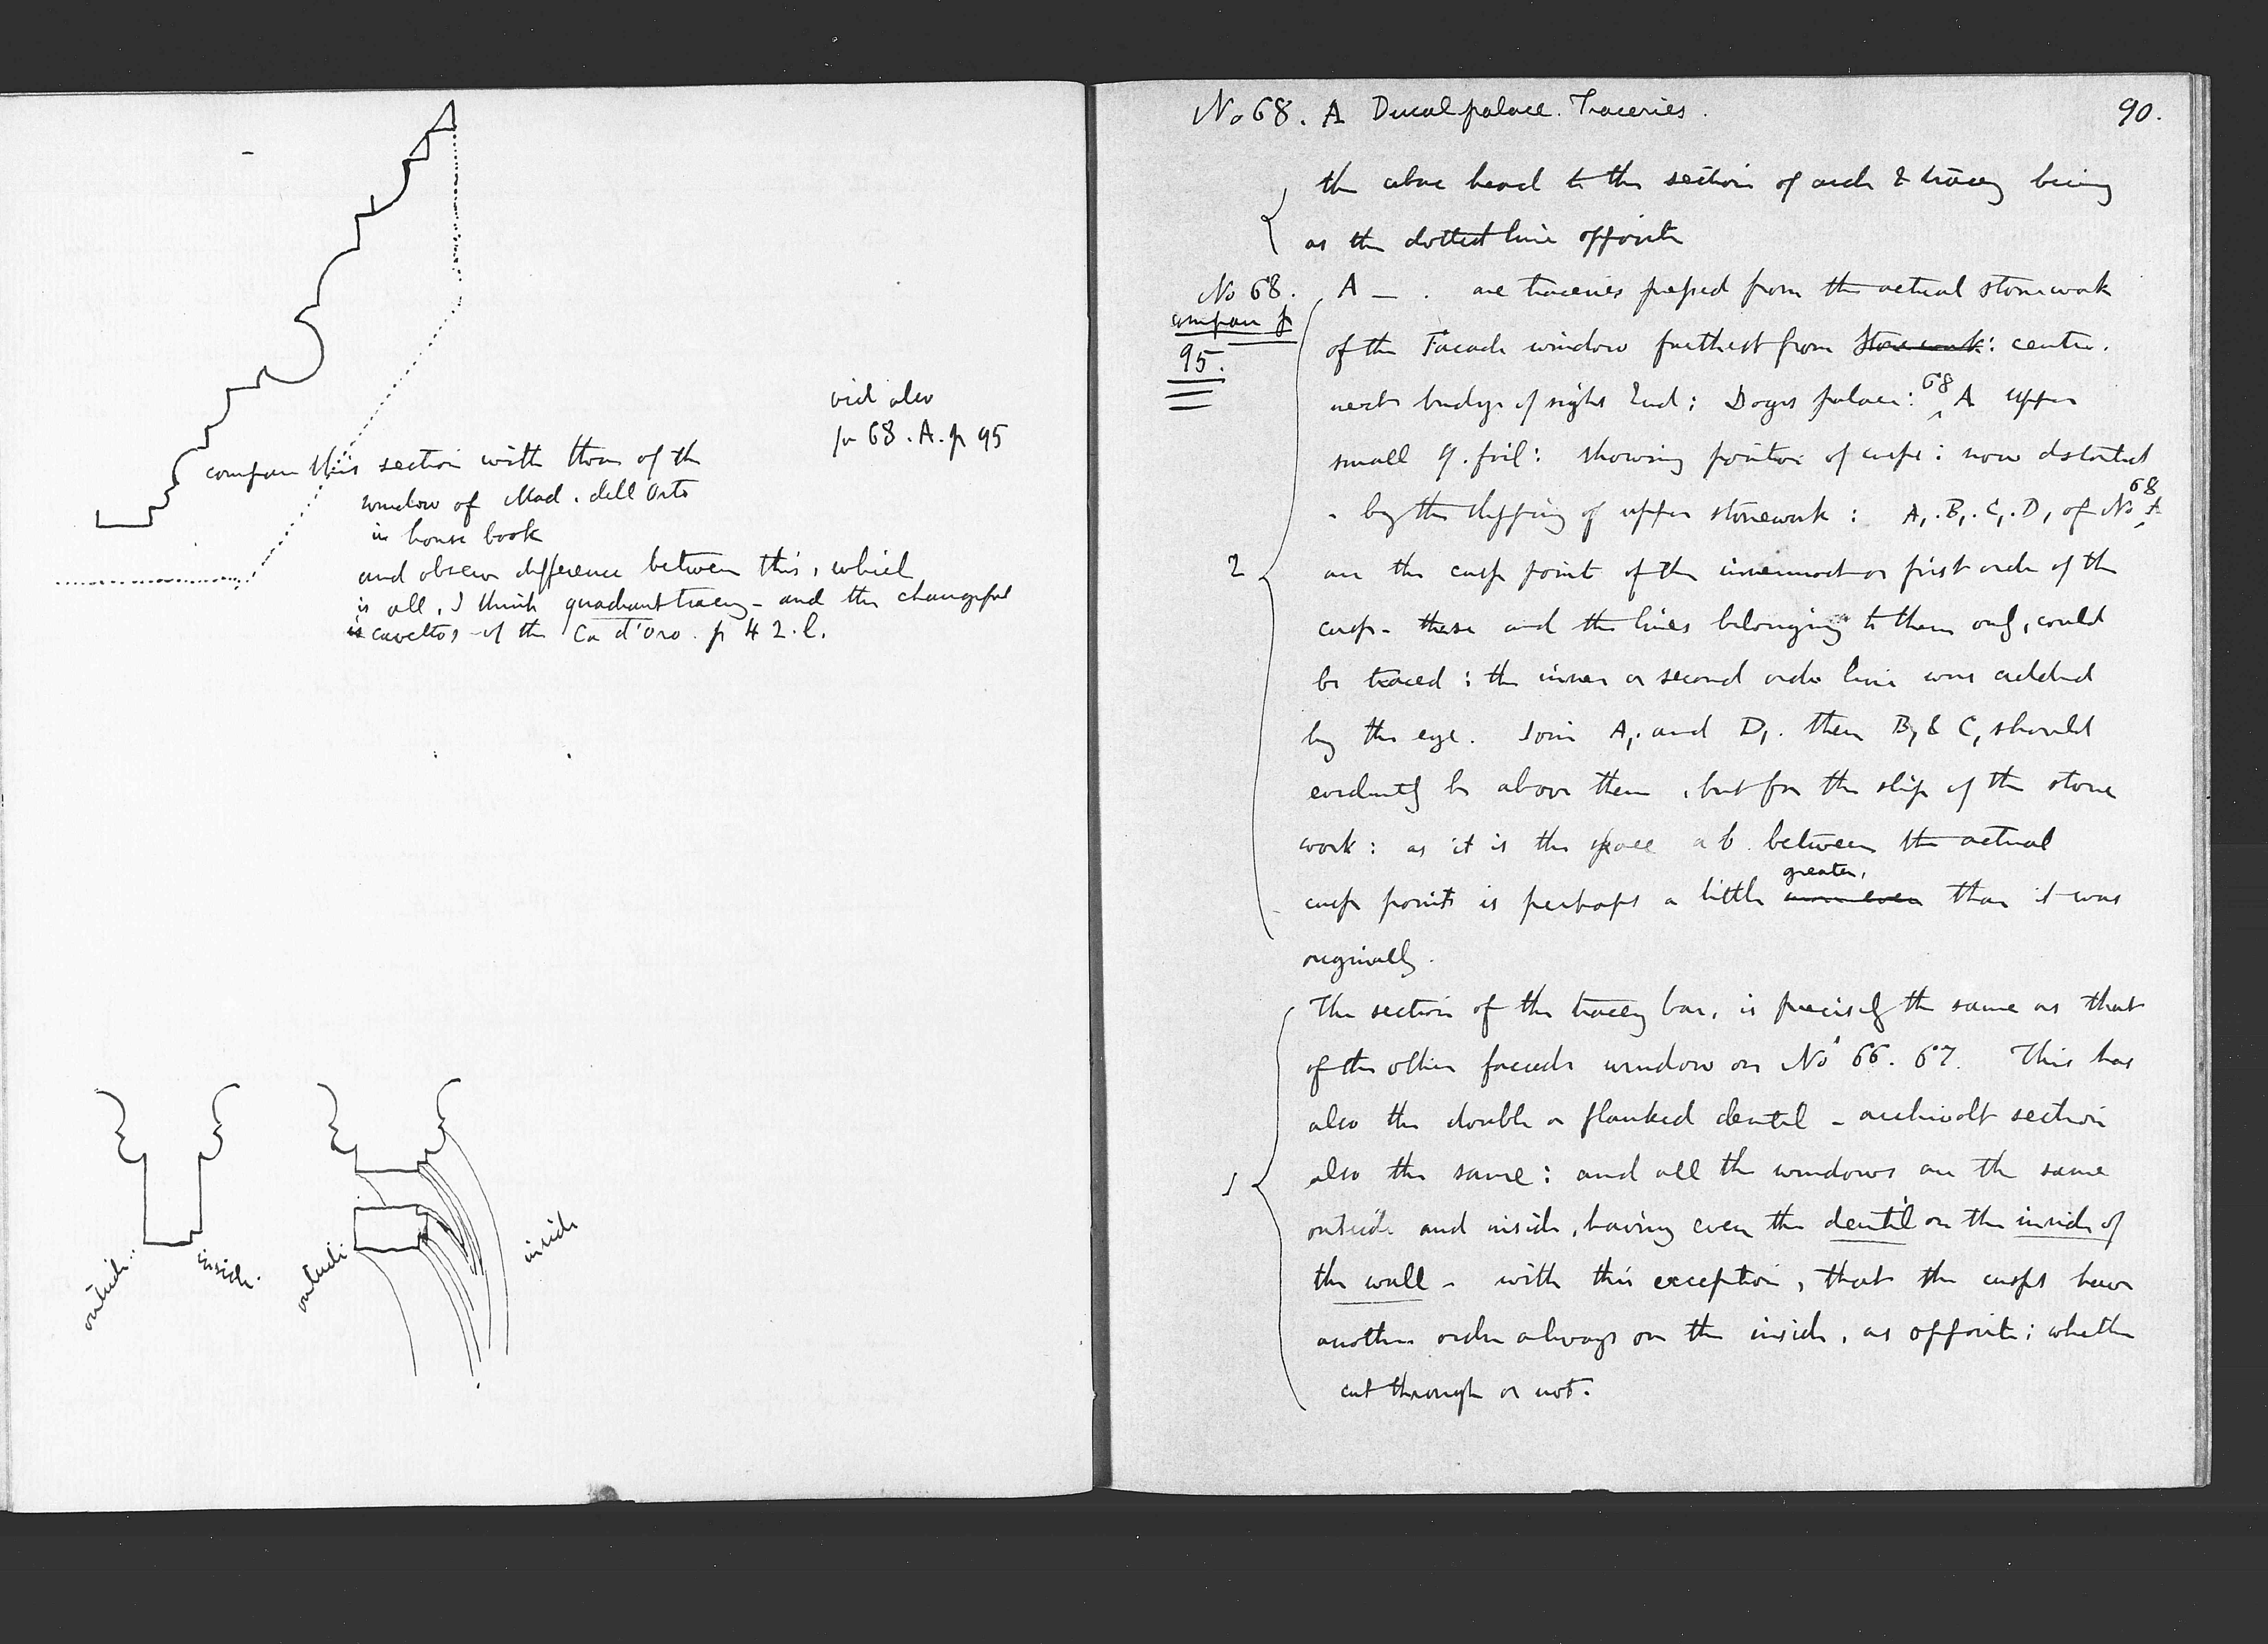 vid also
for 68.A. p 95
compare this section with those of the
window of Mad. dell Orto
in house book
and observe difference between this, which
is all, I think quadrant tracery - and the changeful
cavettos - of the Ca d'Oro. p 42.l.
outside.
inside.
outside
inside
No 68. A Ducal palace. Traceries.
90.
the above head to the section of arch & tracery being
as the dotted line opposite
No 68.
compare p
95.
A — . are traceries pressed from the actual stonework
of the Facade window furthest from Stonework: centre.
next bridge of sighs End: Doges palace: 68 A upper
small q. foil: showing position of cusps: now distorted
- by the slipping of upper stonework: A,.B,.C,.D, of No 68 A
2
are the cusp point of the innermost or first order of the
cusp - these and the lines belonging to them only, could
be traced: the inner or second order line was added
by the eye. Join A,. and D,. then B, & C, should
evidently be above them, but for the slip of the stone
work: as it is the space a b between the actual
greater,
cusp points is perhaps a little than it was
originally.
The section of the tracery bar, is precisely the same as that
of the other facade window on No 66. 67. This has
also the double or flanked dentil - archivolt section
1
also the same: and all the windows are the same
outside and inside, having even the dentil on the inside of
the wall - with this exception, that the cusps have
another order always on the inside, as opposite: whether
cut through or not.